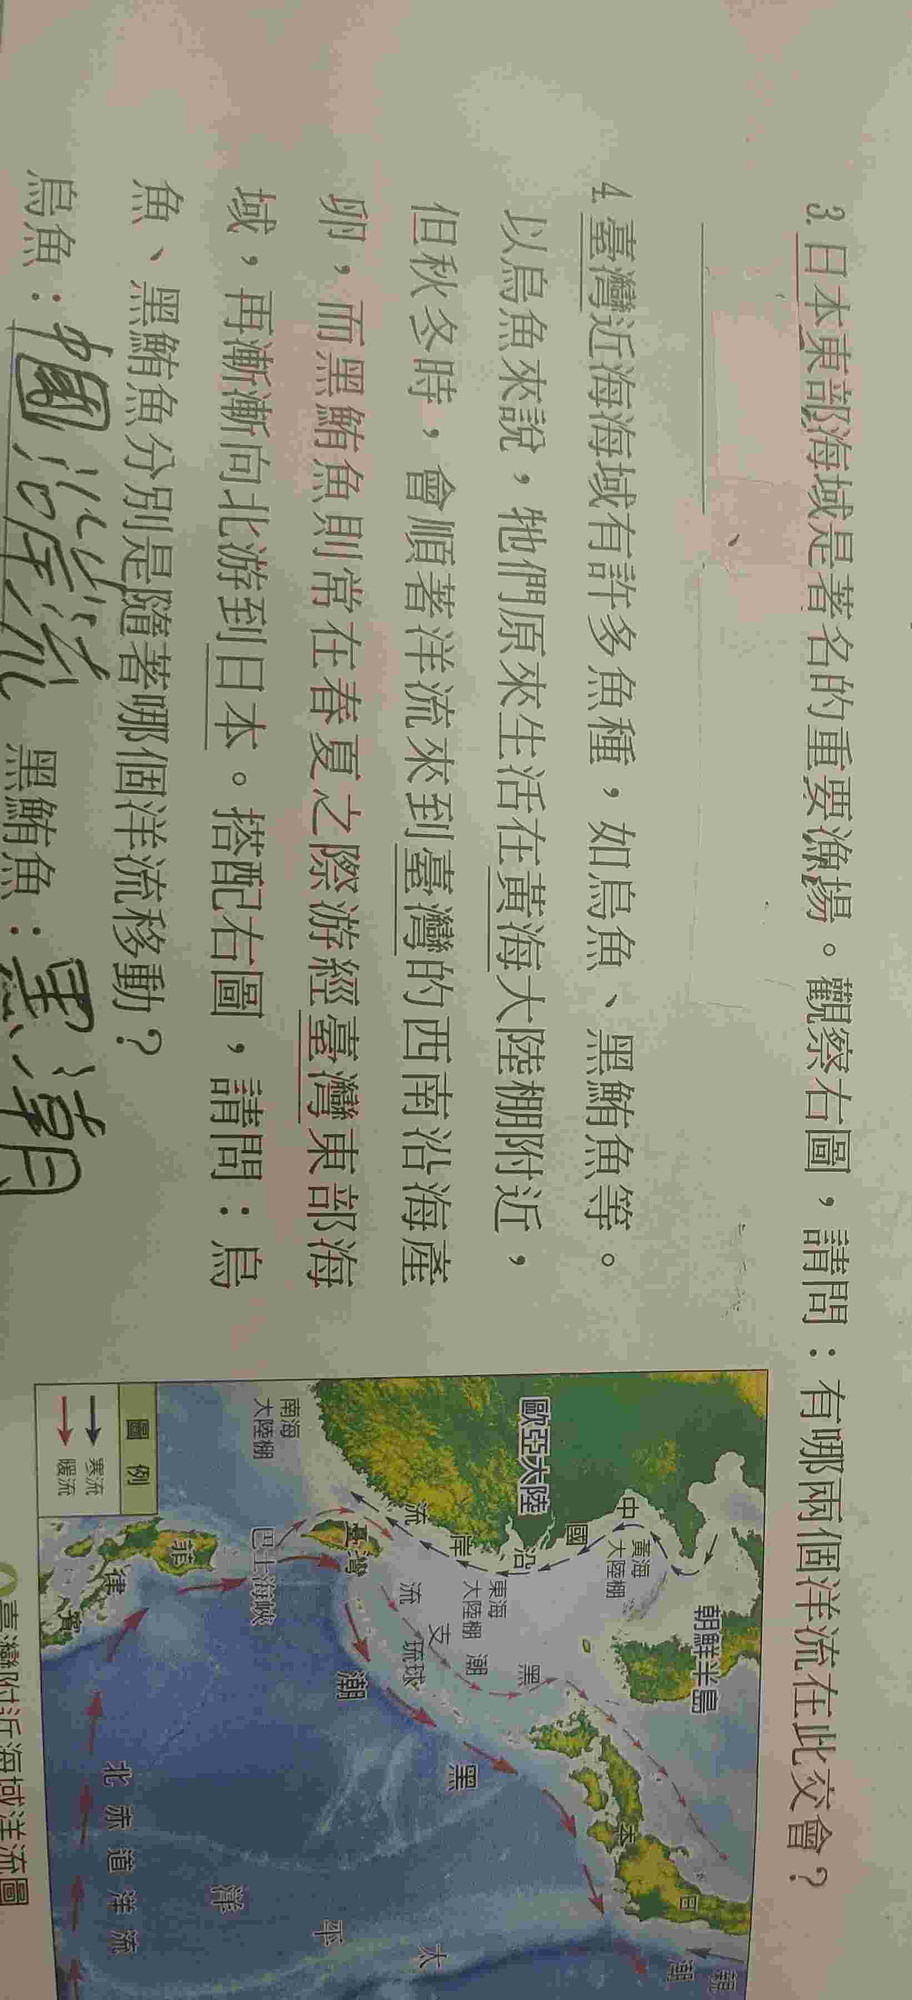 3.日本東部海域是著名的重要漁場。觀察右圖，請問：有哪兩個洋流在此交會？
、
4.臺灣近海海域有許多魚種，如烏魚、黑鮪魚等。
以烏魚來說，牠們原來生活在黃海大陸棚附近，
但秋冬時，會順著洋流來到臺灣的西南沿海產
卵，而黑鮪魚則常在春夏之際游經臺灣東部海
域，再漸漸向北游到日本。搭配右圖，請問：烏
魚、黑鮪魚分別是隨著哪個洋流移動？
烏魚：中國沿岸流 黑鮪魚：黑潮
親潮
朝鮮半島
日本
黃海
大陸棚
中國沿岸流
歐亞大陸
東海
大陸棚
黑潮支流
琉球
黑潮
臺灣
太平洋
南海
大陸棚
巴士海峽
菲律賓
北赤道洋流
圖例
寒流
暖流
臺灣附近海域洋流圖